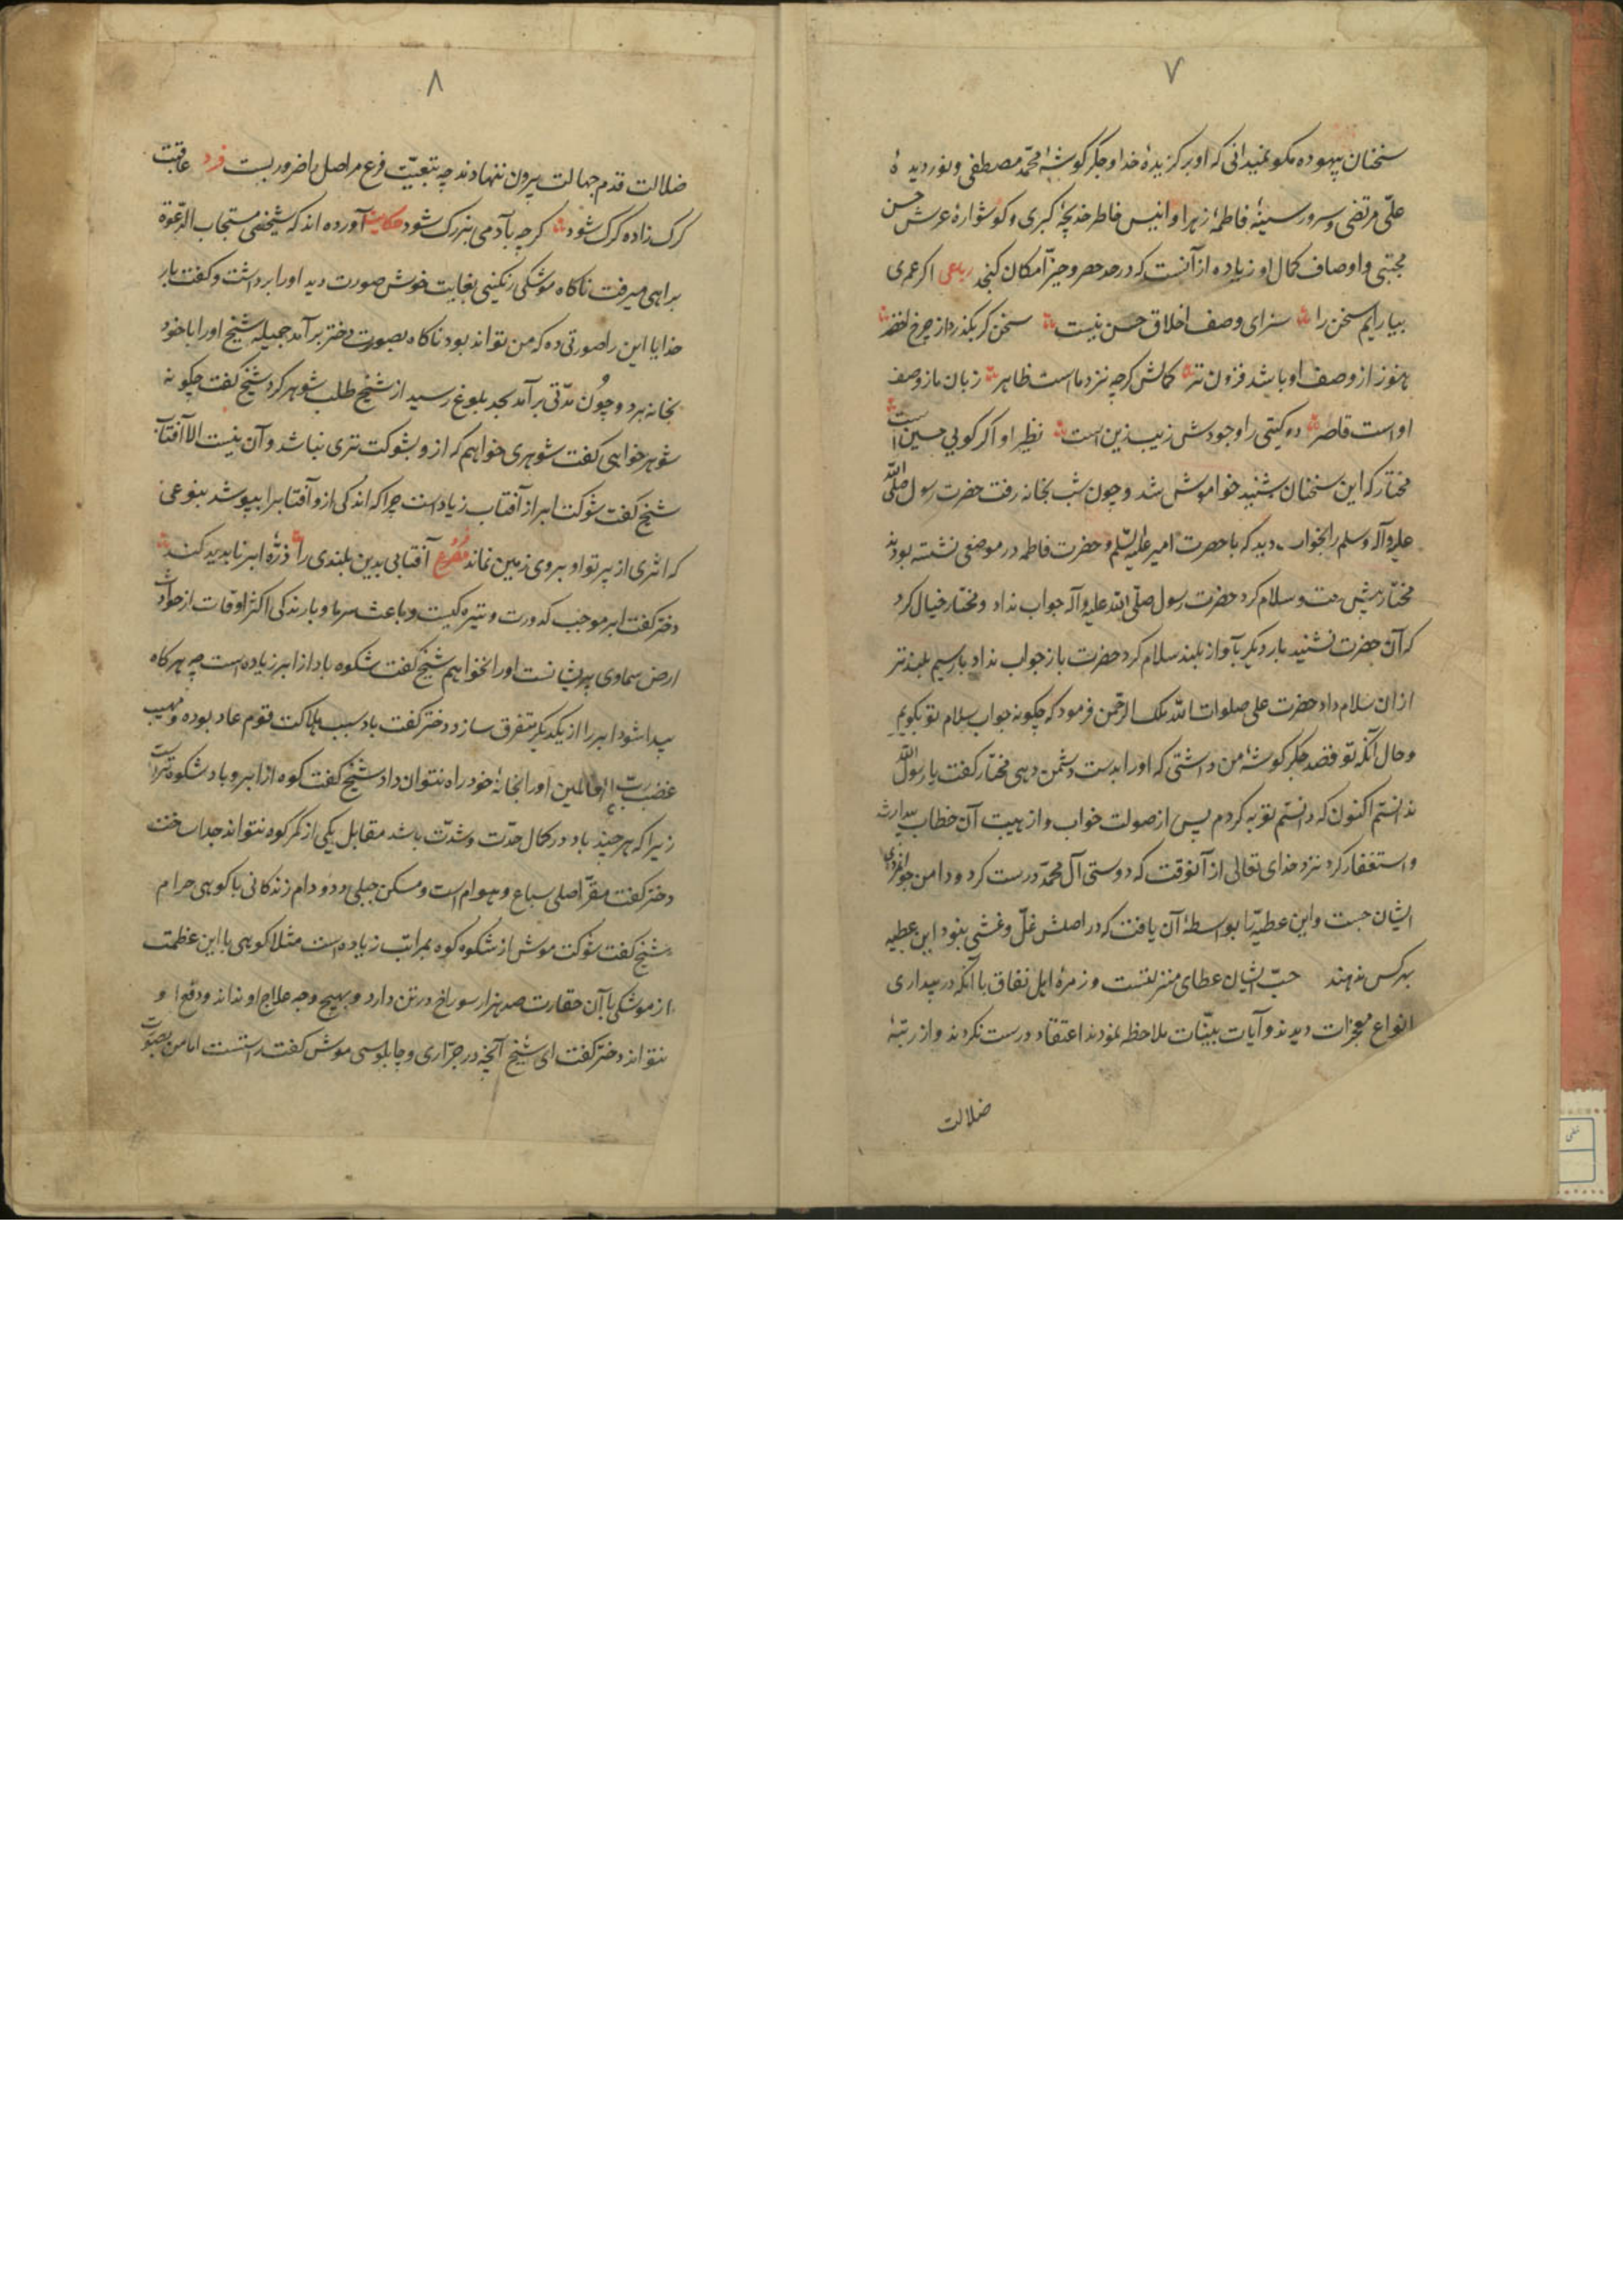 ۷
سخنان بیهوده مکو نمیدانی که او برکزیدهٔ خدا و جکرکوشهٔ محمّد مصطفی و نور دیدهٔ
علّی مرتضی و سرور سینهٔ فاطمهٔ زهرا و انیس خاطر خدیجهٔ کبری و کوشوارهٔ عرش حسن
مجتبی و اوصاف کمال او زیاده از آنست که در حد حصر و حیّز امکان کنجد رباعی اکر عمری
بیارایم سخن را سزای وصف اخلاق حسن نیست سخن کر بکذرد از چرخ اخضر
هنوز از وصف او باشد فزون تر کمالش کرچه نزد ما است ظاهر زبان ما ز وصف
او است قاصر دو کیتی را وجودش زیب زین است نظیر او اکر کویی حسین است
مختار که این سخنان بشنید خواموش شد و چون شب بخانه رفت حضرت رسول صلّی اللّه
علیه و آله و سلم را بخواب دید که با حضرت امیر علیه السّلم و حضرت فاطمه در موضعی نشسته بودند
مختار پیش رفت و سلام کرد حضرت رسول صلّی الله علیه و آله جواب نداد و مختار خیال کرد
که آن حضرت نشنید بار دیکر بآواز بلند سلام کرد حضرت باز جواب نداد بار سیم بلندتر
از ان سلام داد حضرت علی صلوات الله ملک الرّحمن فرمود که چکونه جواب سلام تو بکویم
و حال آنکه تو قصد جکرکوشهٔ من داشتی که او را بدست دشمن دهی مختار کفت یا رسول اللّه
ندانستم اکنون که دانستم توبه کردم پس از صولت خواب و از هیبت آن خطاب بیدار شد
و استغفار کرد نزد خدای تعالی از آنوقت که دوستی آل محمّد درست کرد و دامن جوانمردی
ایشان جست و این عطیّه را بواسطهٔ آن یافت که در اصلش غلّ و غشی نبود این عطیه
بهر کس ندهند حبّ ایشان عطای منزلتست و زمرهٔ اهل نفاق با آنکه در بیداری
انواع معجزات دیدند و آیات بیّنات ملاحظه نمودند اعتقاد درست نکردند و از رتبهٔ
ضلالت
۸
ضلالت قدم جهالت بیرون ننهادند چه تبعیّت فرع مر اصل را ضروریست فرد عاقبت
کرک زاده کرک شود کرچه با آدمی بزرک شود حکایت آورده اند که شیخی مستجاب الدّعوة
براهی میرفت ناکاه موشکی رنکینی بغایت خوش صورت دید او را برداشت و کفت بار
خدایا این را صورتی ده که من تواند بود ناکاه بصورت دختر برآمد جمیله شیخ او را با خود
بخانه برد و چُون مدّتی برآمد بحد بلوغ رسید از شیخ طلب شوهر کرد شیخ کفت چکونه
شوهر خواهی کفت شوهری خواهم که از و بشوکت تری نباشد و آن نیست الا آفتاب
شیخ کفت شوکت ابر از آفتاب زیاد است چرا که اندکی از و آفتاب را بپوشد بنوعی
که اثری از پرتو او بر وی زمین نماند مصرع آفتابی بدین بلندی را ذرّهٔ ابر ناپدید کند
دختر کفت ابر موجب کدورت و تیره کیست و باعث سرما و بارندکی اکثر اوقات از حوادث
ارض سماوی پریشانست او را نخواهم شیخ کفت شکوه باد از ابر زیاده است چه هر کاه
پیدا شود ابر را از یکدیکر متفرق سازد دختر کفت باد سبب هلاکت قوم عاد بوده و مهیب
غضب ربّ العالمین او را بخانهٔ خود راه نتوان داد شیخ کفت کوه از ابر و باد شکوه تر است
زیرا که هر چند باد در کمال حدّت و شدّت باشد مقابل یکی از کمر کوه نتواند جدا ساخت
دختر کفت مقرّ اصلی سباع و هوام است و مسکن جبلی دد و دام زندکانی با کوهی حرام
شیخ کفت شوکت موش از شکوه کوه بمراتب زیاده است مثلا کوهی با این عظمت
از موشکی با آن حقارت صد هزار سوراخ در تن دارد و بهیچ وجه علاج او نداند و دفع او
نتواند دختر کفت ای شیخ آنچه در جرّاری و چابلوسی موش کفت راستست اما من بصورت